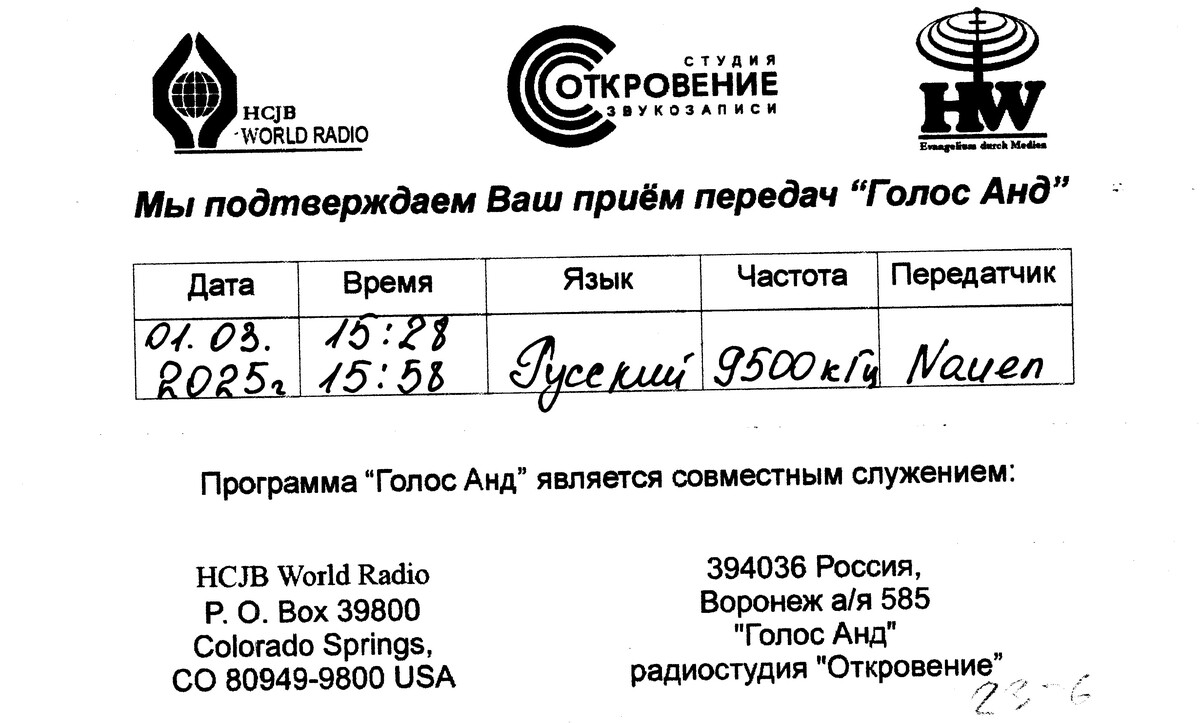 HCJB
WORLD RADIO
СТУДИЯ
ОТКРОВЕНИЕ
ЗВУКОЗАПИСИ
HW
Evangelium durch Medien
Мы подтверждаем Ваш приём передач “Голос Анд”
Дата Время Язык Частота Передатчик
01.03. 15:28
2025г 15:58 Русский 9500 кГц Nauen
Программа “Голос Анд” является совместным служением:
HCJB World Radio
P. O. Box 39800
Colorado Springs,
CO 80949-9800 USA
394036 Россия,
Воронеж а/я 585
"Голос Анд"
радиостудия "Откровение”
23-6